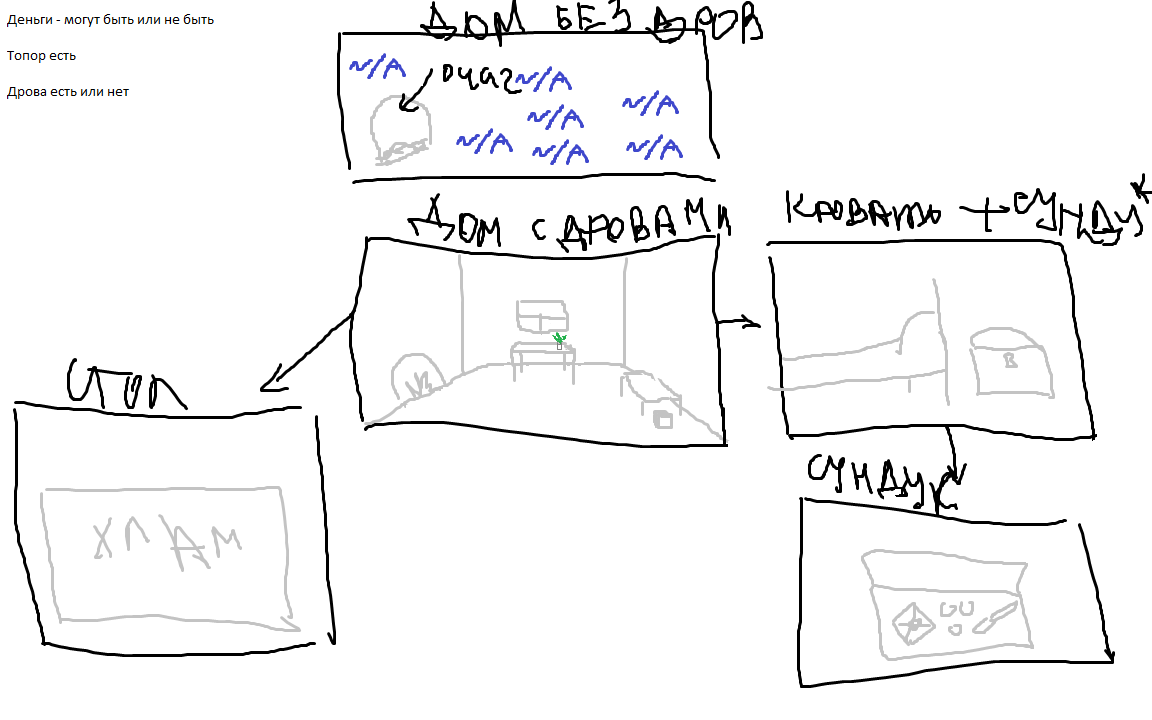 Деньги - могут быть или не быть
Топор есть
Дрова есть или нет
ДОМ БЕЗ ДРОВ
N/A
очаг
N/A
N/A
N/A
N/A
N/A
N/A
ДОМ С ДРОВАМИ
КРОВАТЬ + СУНДУК
В
СТОЛ
ХЛАМ
СУНДУК